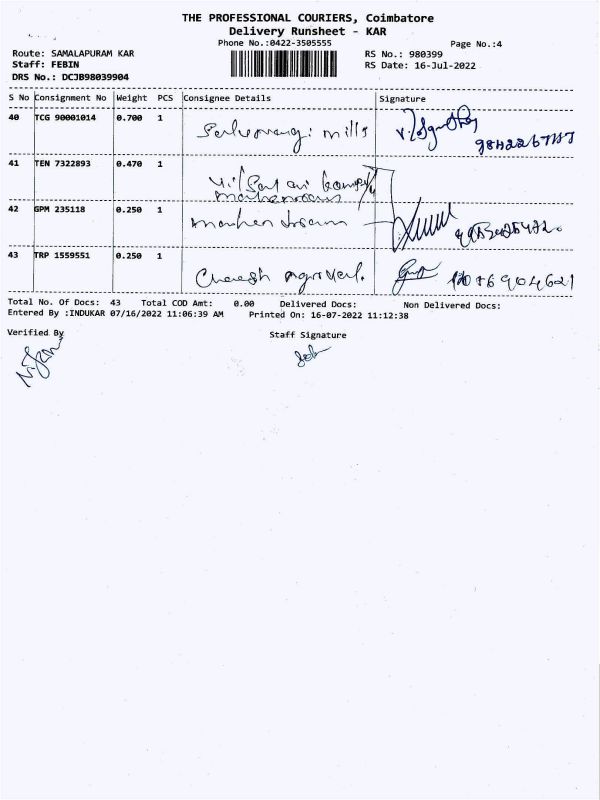 THE PROFESSIONAL COURIERS, Coimbatore
Delivery Runsheet - KAR
Phone No.:0422-3505555
Page No.:4
Route: SAMALAPURAM KAR
RS No.: 980399
Staff: FEBIN
RS Date: 16-Jul-2022
DRS No.: DCJB98039904
S No Consignment No Weight PCS Consignee Details Signature
40 TCG 90001014 0.700 1 mills
41 TEN 7322893 0.470 1
42 GPM 235118 0.250 1
43 TRP 1559551 0.250 1
Total No. Of Docs: 43 Total COD Amt: 0.00 Delivered Docs: Non Delivered Docs:
Entered By :INDUKAR 07/16/2022 11:06:39 AM Printed On: 16-07-2022 11:12:38
Verified By
Staff Signature